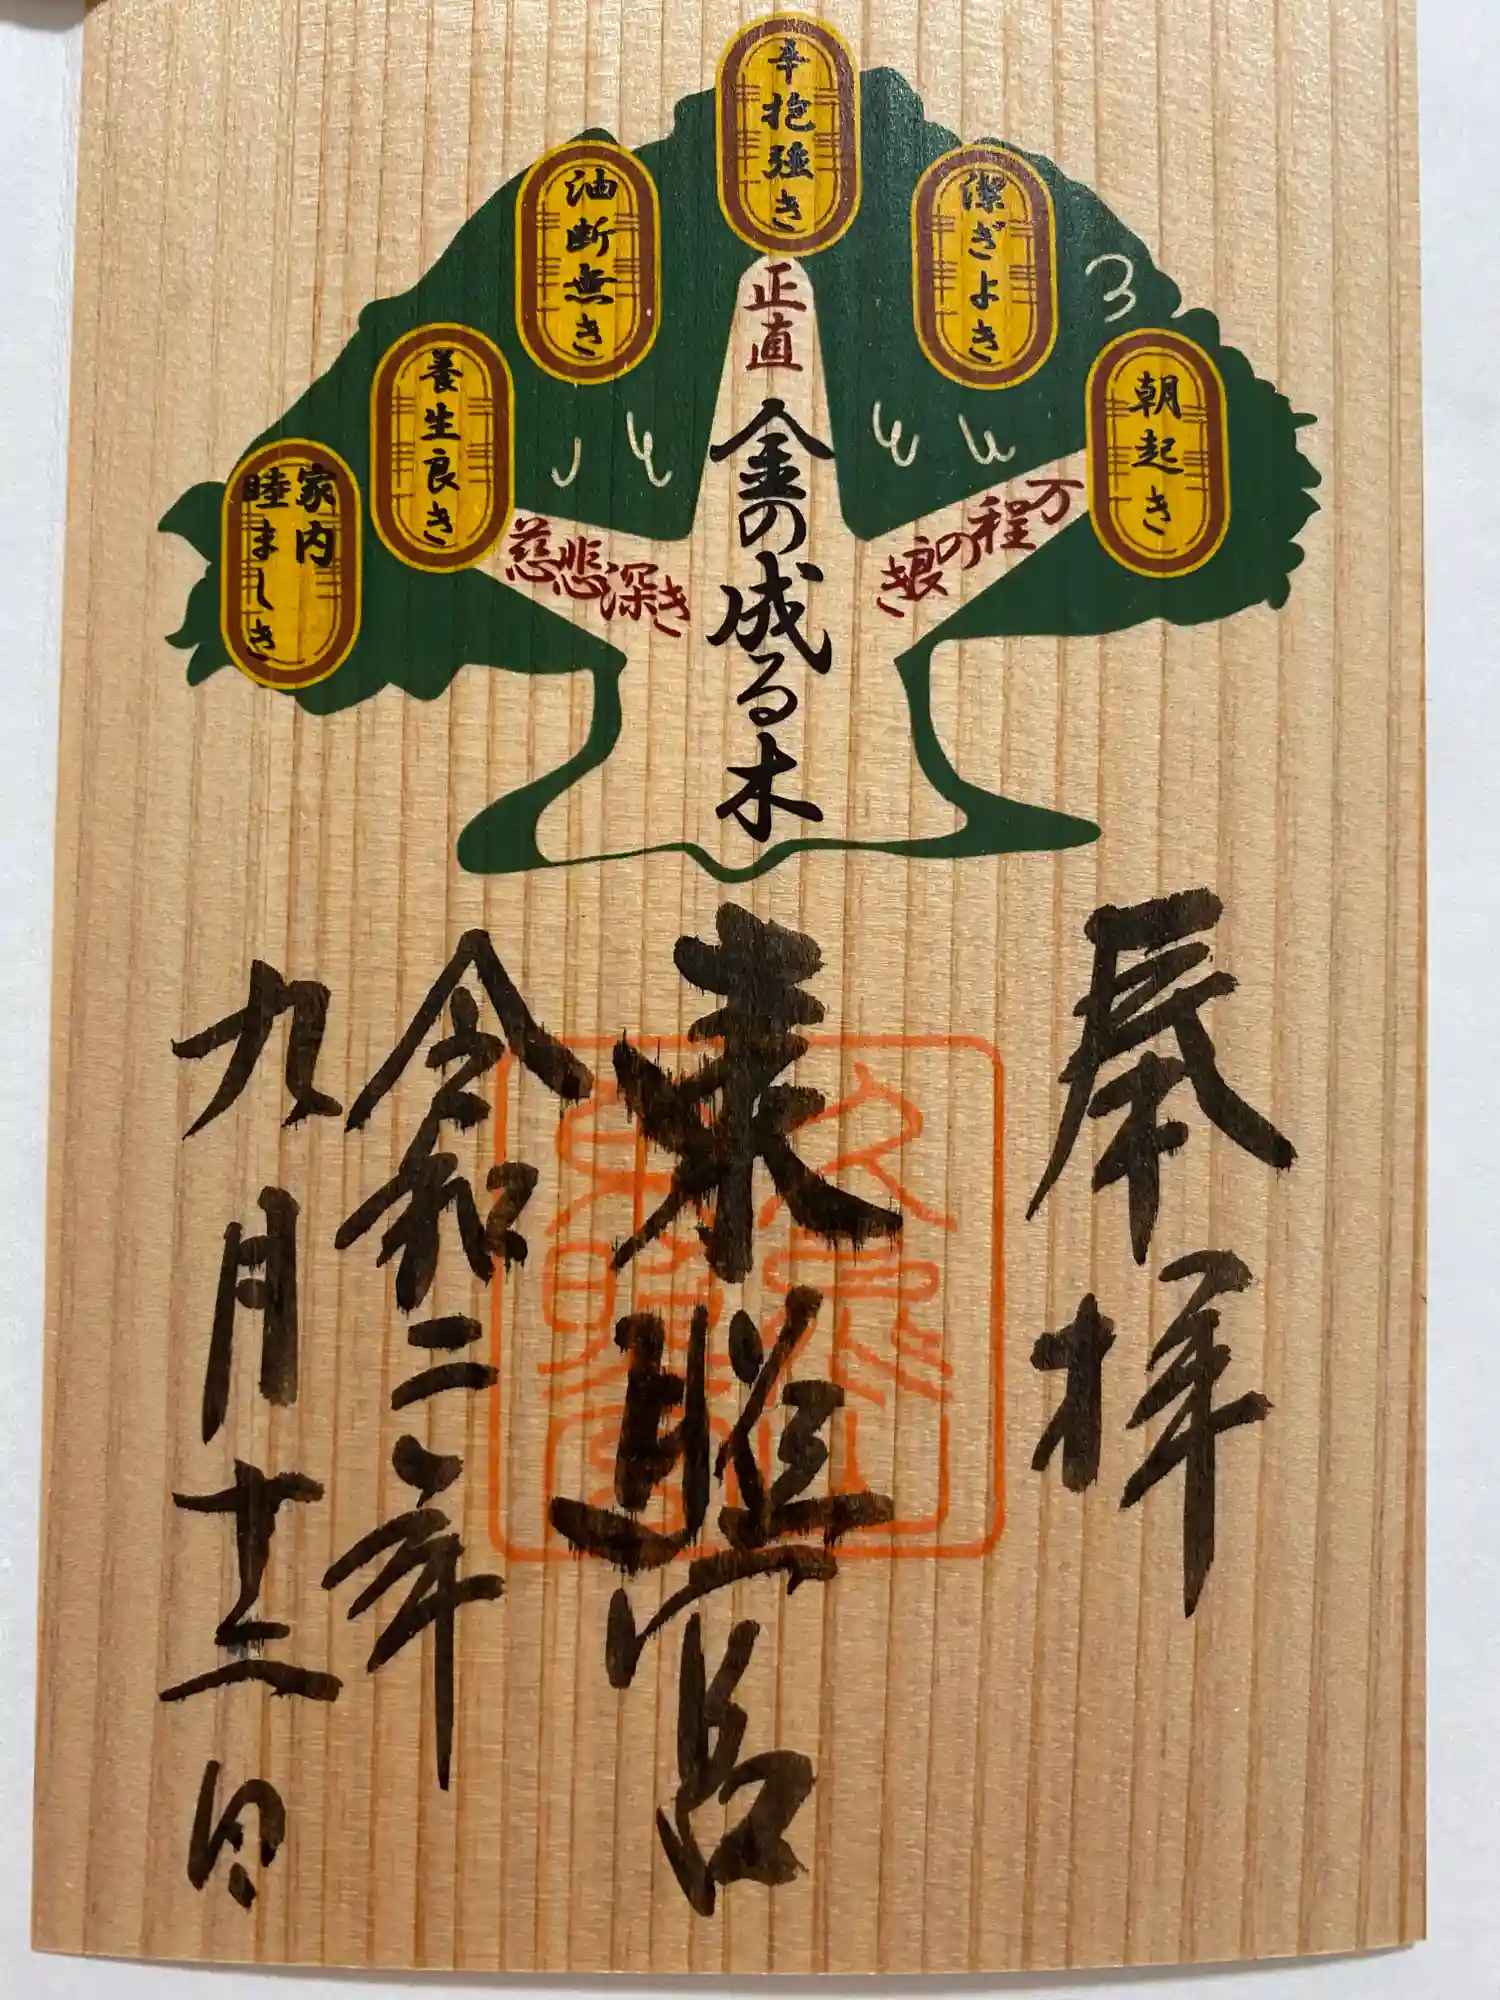 辛抱強き
潔ぎよき
油断無き
朝起き
養生良き
家内
睦ましき
正直
万程の良き
慈悲深き
金の成る木
奉拝
東照宮
久能山
東照宮
令和二年
九月十二日